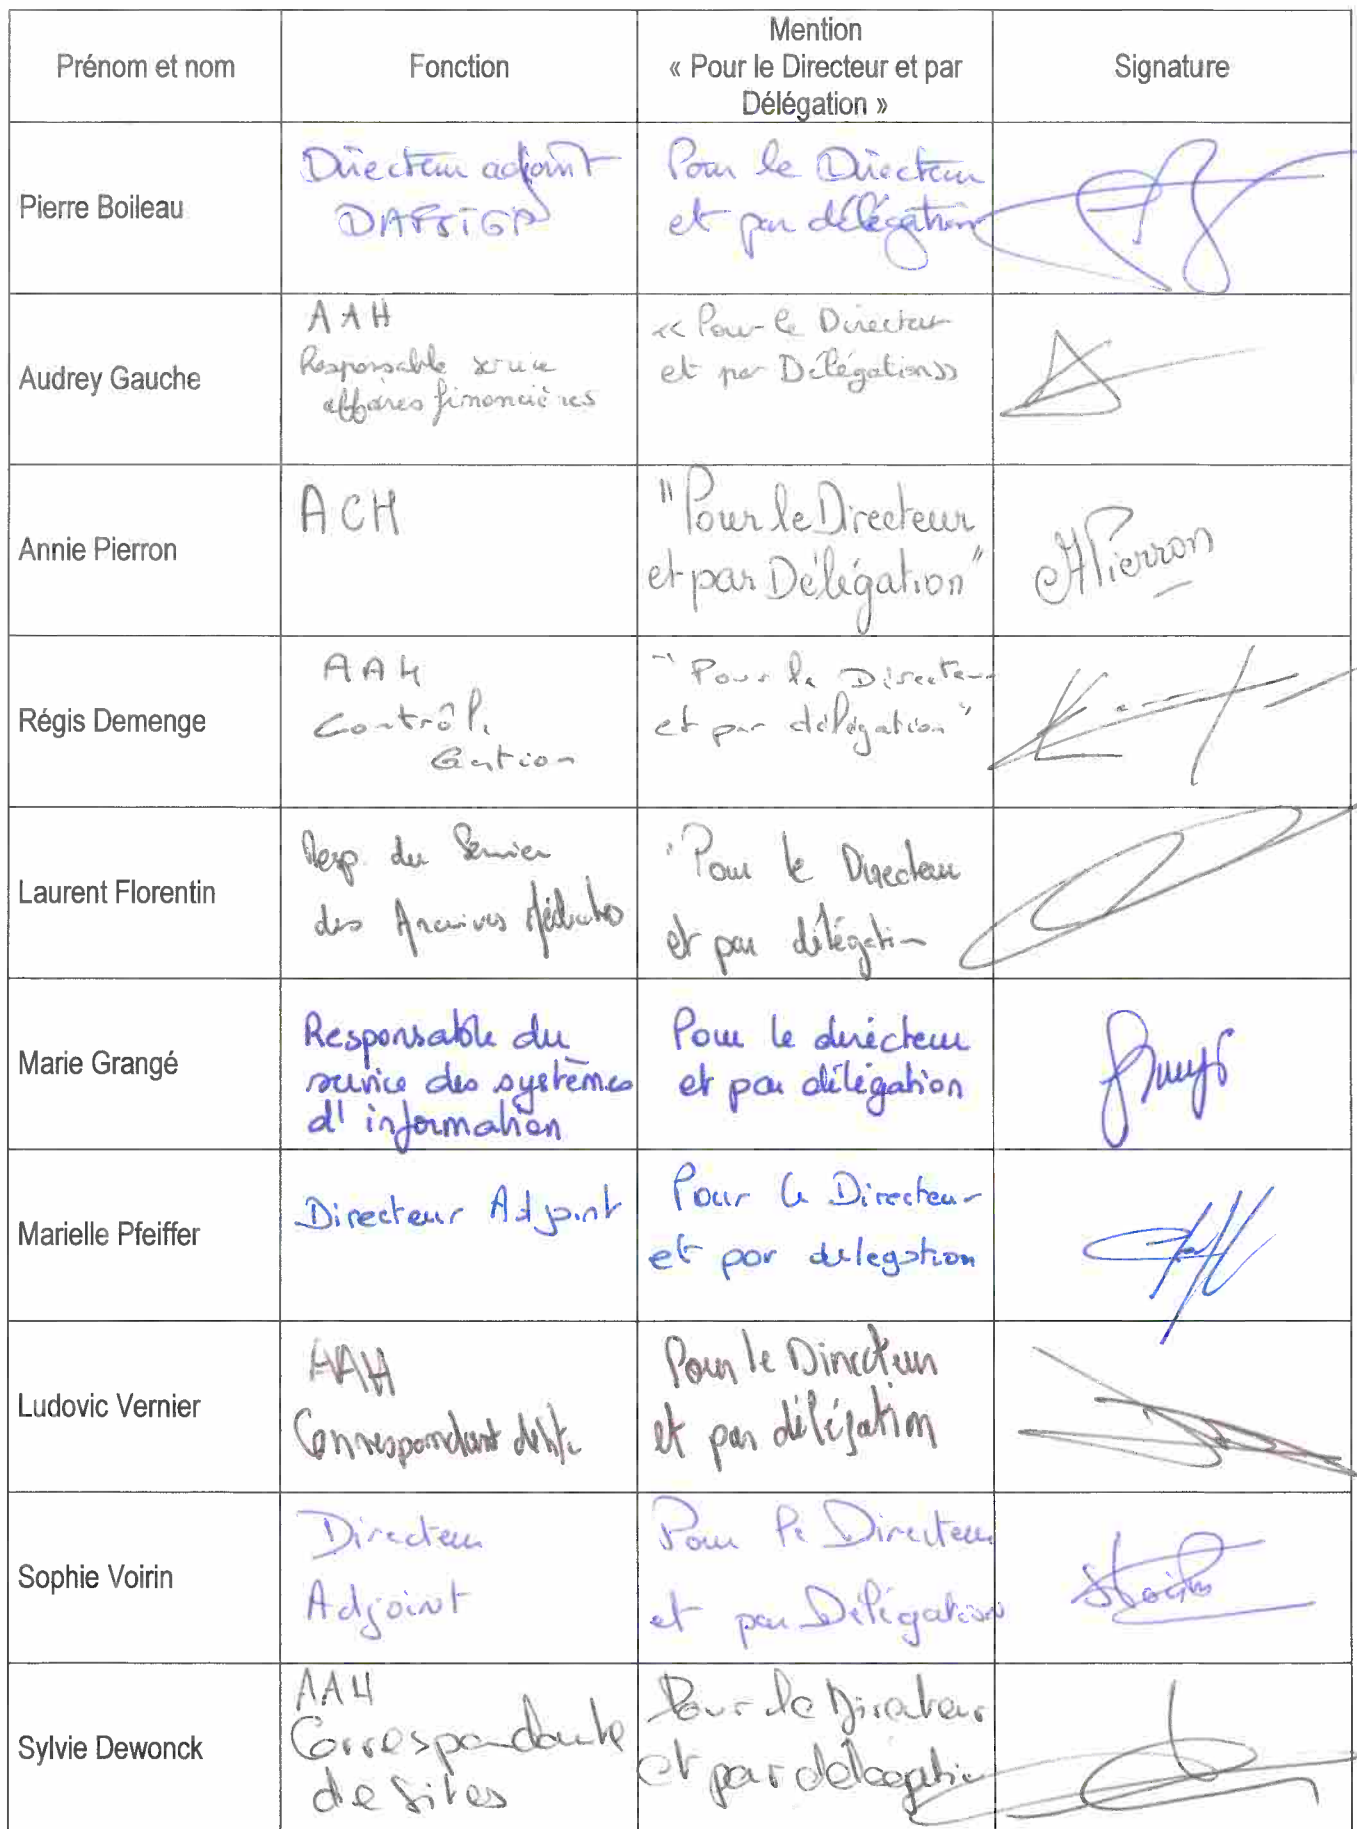 Prénom et nom
Fonction
Mention
« Pour le Directeur et par
Délégation »
Signature
Pierre Boileau
Directeur adjoint
Pour le Directeur
et par délégation
Audrey Gauche
AAH
Responsable service
affaires financières
« Pour le Directeur
et par Délégation »
Annie Pierron
ACH
"Pour le Directeur
et par Délégation"
APierron
Régis Demenge
AAH
Contrôle
Gestion
"Pour le Directeur
et par délégation"
Laurent Florentin
Resp. du Service
des Archives Médicales
"Pour le Directeur
et par délégation
Marie Grangé
Responsable du
service des systèmes
d'information
Pour le directeur
et par délégation
Marielle Pfeiffer
Directeur Adjoint
Pour le Directeur
et par delegation
Ludovic Vernier
AAH
Correspondant de site
Pour le Directeur
et par délégation
Sophie Voirin
Directeur
Adjoint
Pour le Directeur
et par Délégation
SVoirin
Sylvie Dewonck
AAH
Correspondante
de Sites
Pour le Directeur
et par délégation